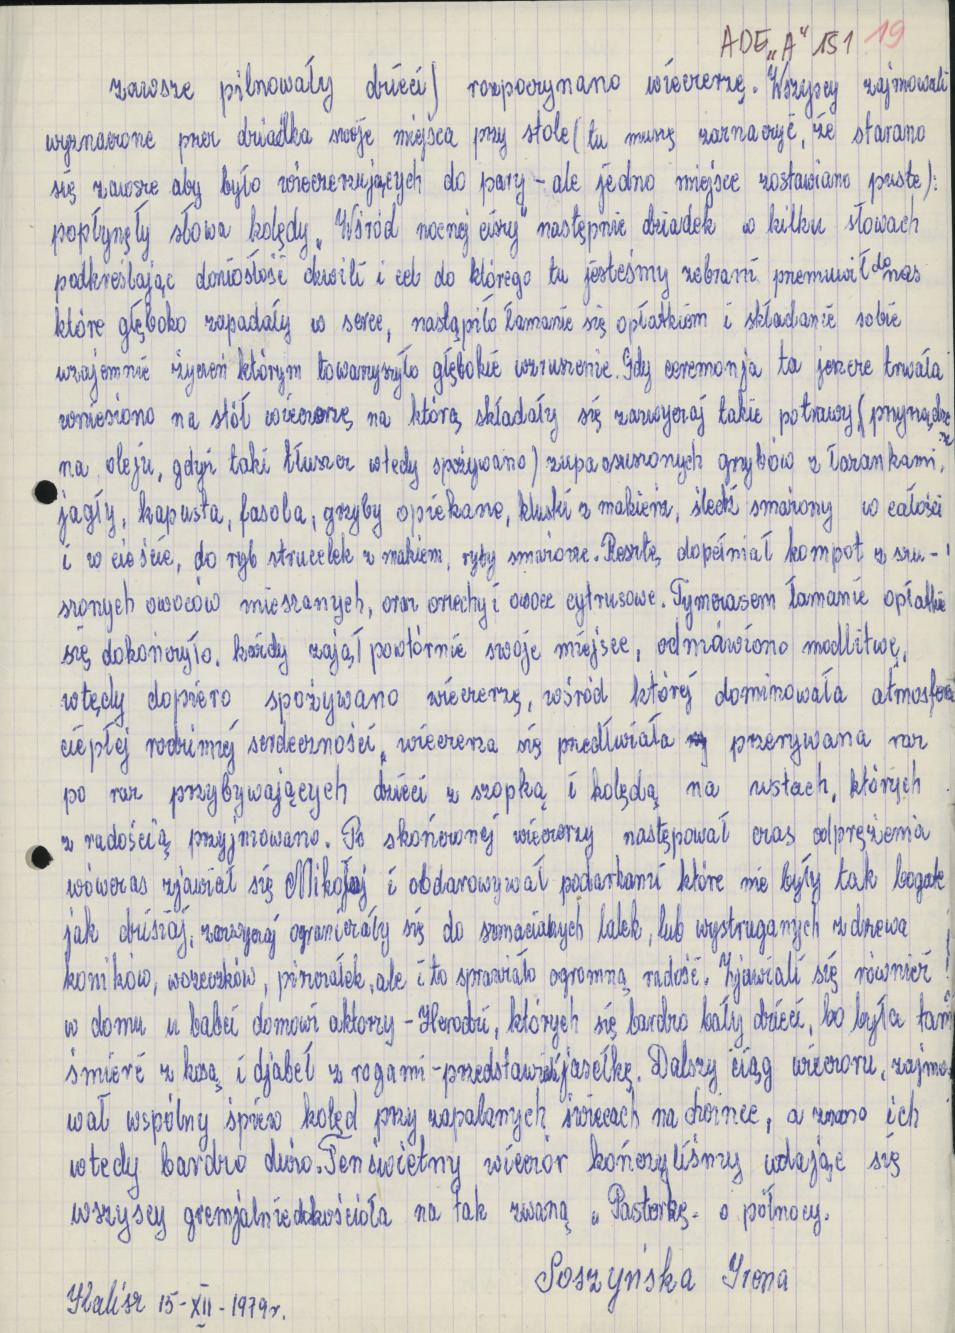 ADE „A" 151 19
zawsze pilnowały dzieci) rozpoczynano wieczerzę. Wszyscy zajmowali
wyznaczone przez dziadka swoje miejsca przy stole (tu muszę zaznaczyć, że starano
się zawsze aby było wieczerzujących do pary - ale jedno miejsce zostawiano puste):
popłynęły słowa kolędy „Wśród nocnej ciszy" następnie dziadek w kilku słowach
podkreślając doniosłość chwili i cel do którego tu jesteśmy zebrani przemówił do nas
które głęboko zapadały w serce, nastąpiło łamanie się opłatkiem i składanie sobie
wzajemnie życzeń którym towarzyszyło głębokie wzruszenie. Gdy ceremonja ta jeszcze trwała
wniesiono na stół wieczerzę na którą składały się zazwyczaj takie potrawy (przyrządzo
na oleju, gdyż taki tłuszcz wtedy spożywano) zupa suszonych grzybów z łazankami,
jagły, kapusta, fasola, grzyby opiekane, kluski z makiem, śledź smażony w całości
i w cieście, do ryb strucelek z makiem, ryby smażone. Resztę dopełniał kompot z su-
szonych owoców mieszanych, oraz orzechy i owoce cytrusowe. Tymczasem łamanie opłatkiem
się dokończyło. każdy zajął powtórnie swoje miejsce, odmówiono modlitwę,
wtędy dopiero spożywano wieczerzę, wśród której dominowała atmosfera
ciepłej rodzinnej serdeczności, wieczerza się przedłużała przerywana raz
po raz przybywających dzieci z szopką i kolędą na ustach, których
z radością przyjmowano. Po skończonej wieczerzy następował czas odprężenia
wówczas zjawiał się Mikołaj i obdarowywał podarkami które nie były tak bogate
jak dzisiaj, zazwyczaj ograniczały się do szmacianych lalek, lub wystruganych z drzewa
koników, wózeczków, piszczałek, ale i to sprawiało ogromną radość. Zjawiali się również
w domu u babci domowi aktorzy - Herodzi, których się bardzo bały dzieci, bo była tam
śmierć z kosą i djabeł z rogami - przedstawiali jasełkę. Dalszy ciąg wieczoru, zajmo-
wał wspólny śpiew kolęd przy zapalanych świecach na choince, a znano ich
wtedy bardzo dużo. Ten świetny wieczór kończyliśmy udając się
wszyscy gremjalnie do kościoła na tak zwaną „Pasterkę- o północy.
Soszyńska Irena
Kalisz 15-XII-1979r.